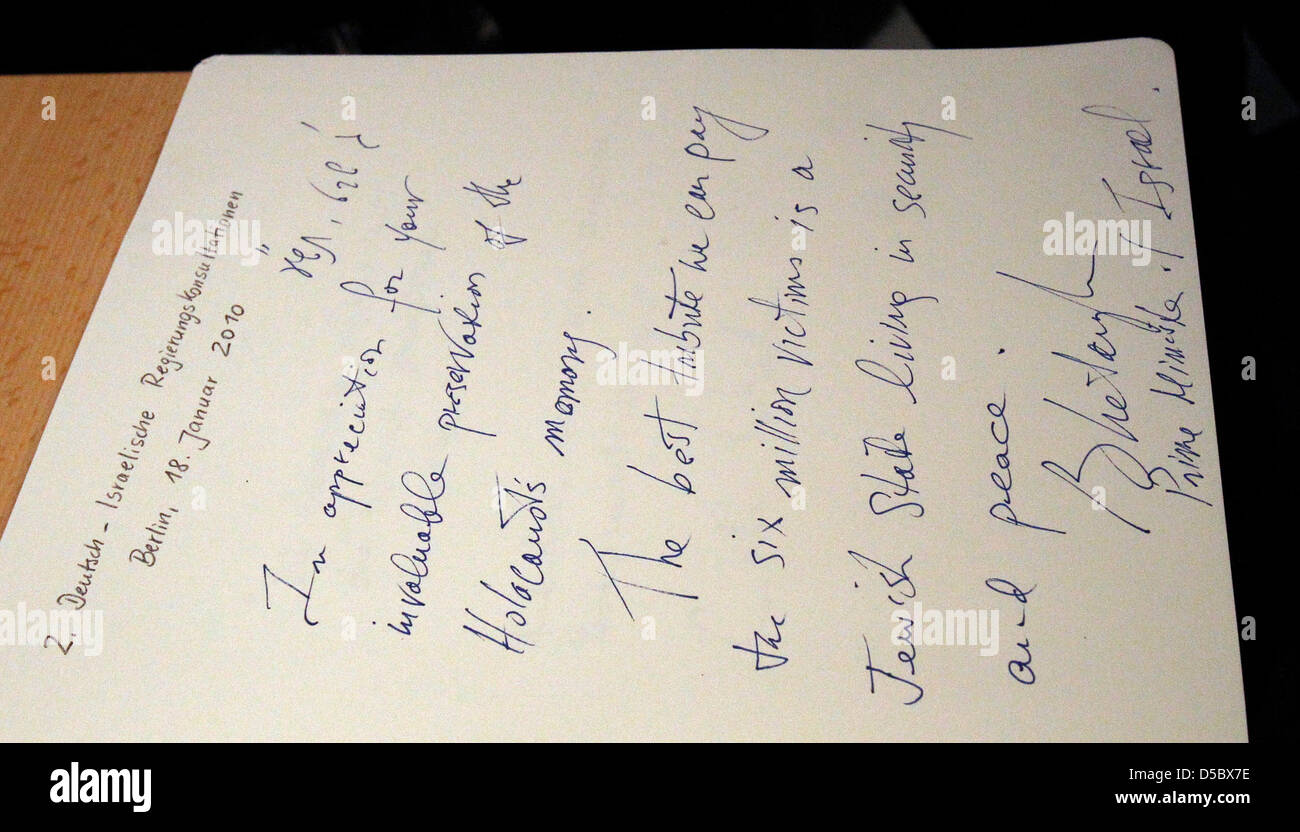 2. Deutsch-Israelische Regierungskonsultationen
Berlin, 18. Januar 2010
In appreciation for your
invaluable preservation of the
Holocaust's memory.
The best tribute we can pay
the six million victims is a
Jewish State living in security
and peace.
B. Netanyahu
Prime Minister of Israel.
a alamy stock photo
alamy
Image ID: D5BX7E
www.alamy.com